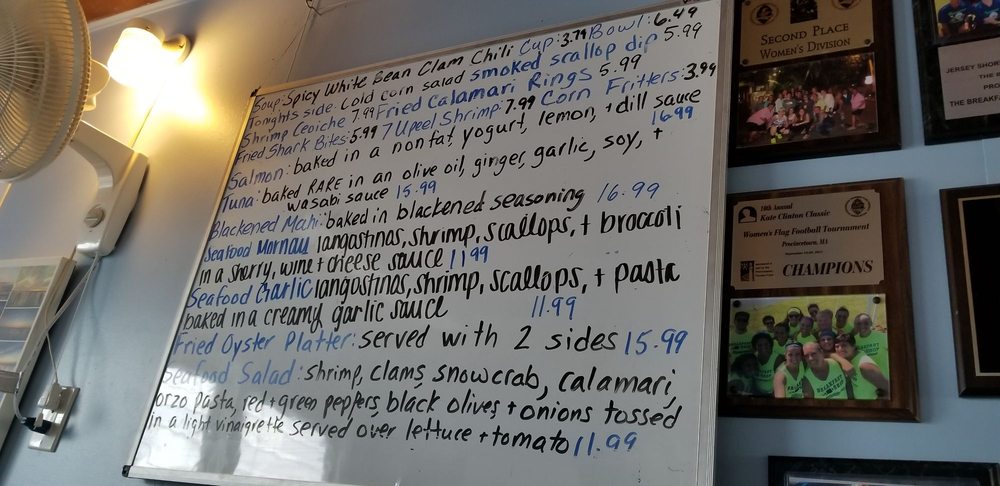 Soup: Spicy White Bean Clam Chili Cup: 3.79 Bowl: 6.49
Tonights side: cold corn salad smoked scallop dip 5.99
Shrimp Ceviche 7.99 Fried Calamari Rings 5.99
Fried Shark Bites: 5.99 7 Upeel Shrimp: 7.99 Corn Fritters: 3.99
Salmon: baked in a nonfat, yogurt, lemon, + dill sauce
16.99
Tuna: baked RARE in an olive oil, ginger, garlic, soy, +
wasabi sauce 15.99
Blackened Mahi: baked in blackened seasoning 16.99
Seafood Mornay langostinos, shrimp, scallops, + broccoli
in a sherry, wine + cheese sauce 11.99
Seafood Garlic langostinos, shrimp, scallops, + pasta
baked in a creamy garlic sauce 11.99
Fried Oyster Platter: served with 2 sides 15.99
Seafood Salad: shrimp, clams, snowcrab, calamari,
orzo pasta, red + green peppers, black olives, + onions tossed
in a light vinaigrette served over lettuce + tomato 11.99
SECOND PLACE
WOMEN'S DIVISION
JERSEY SHOR
THE B
PRO
THE BREAKFA
Kate Clinton Classic
Women's Flag Football Tournament
Provincetown, MA
CHAMPIONS